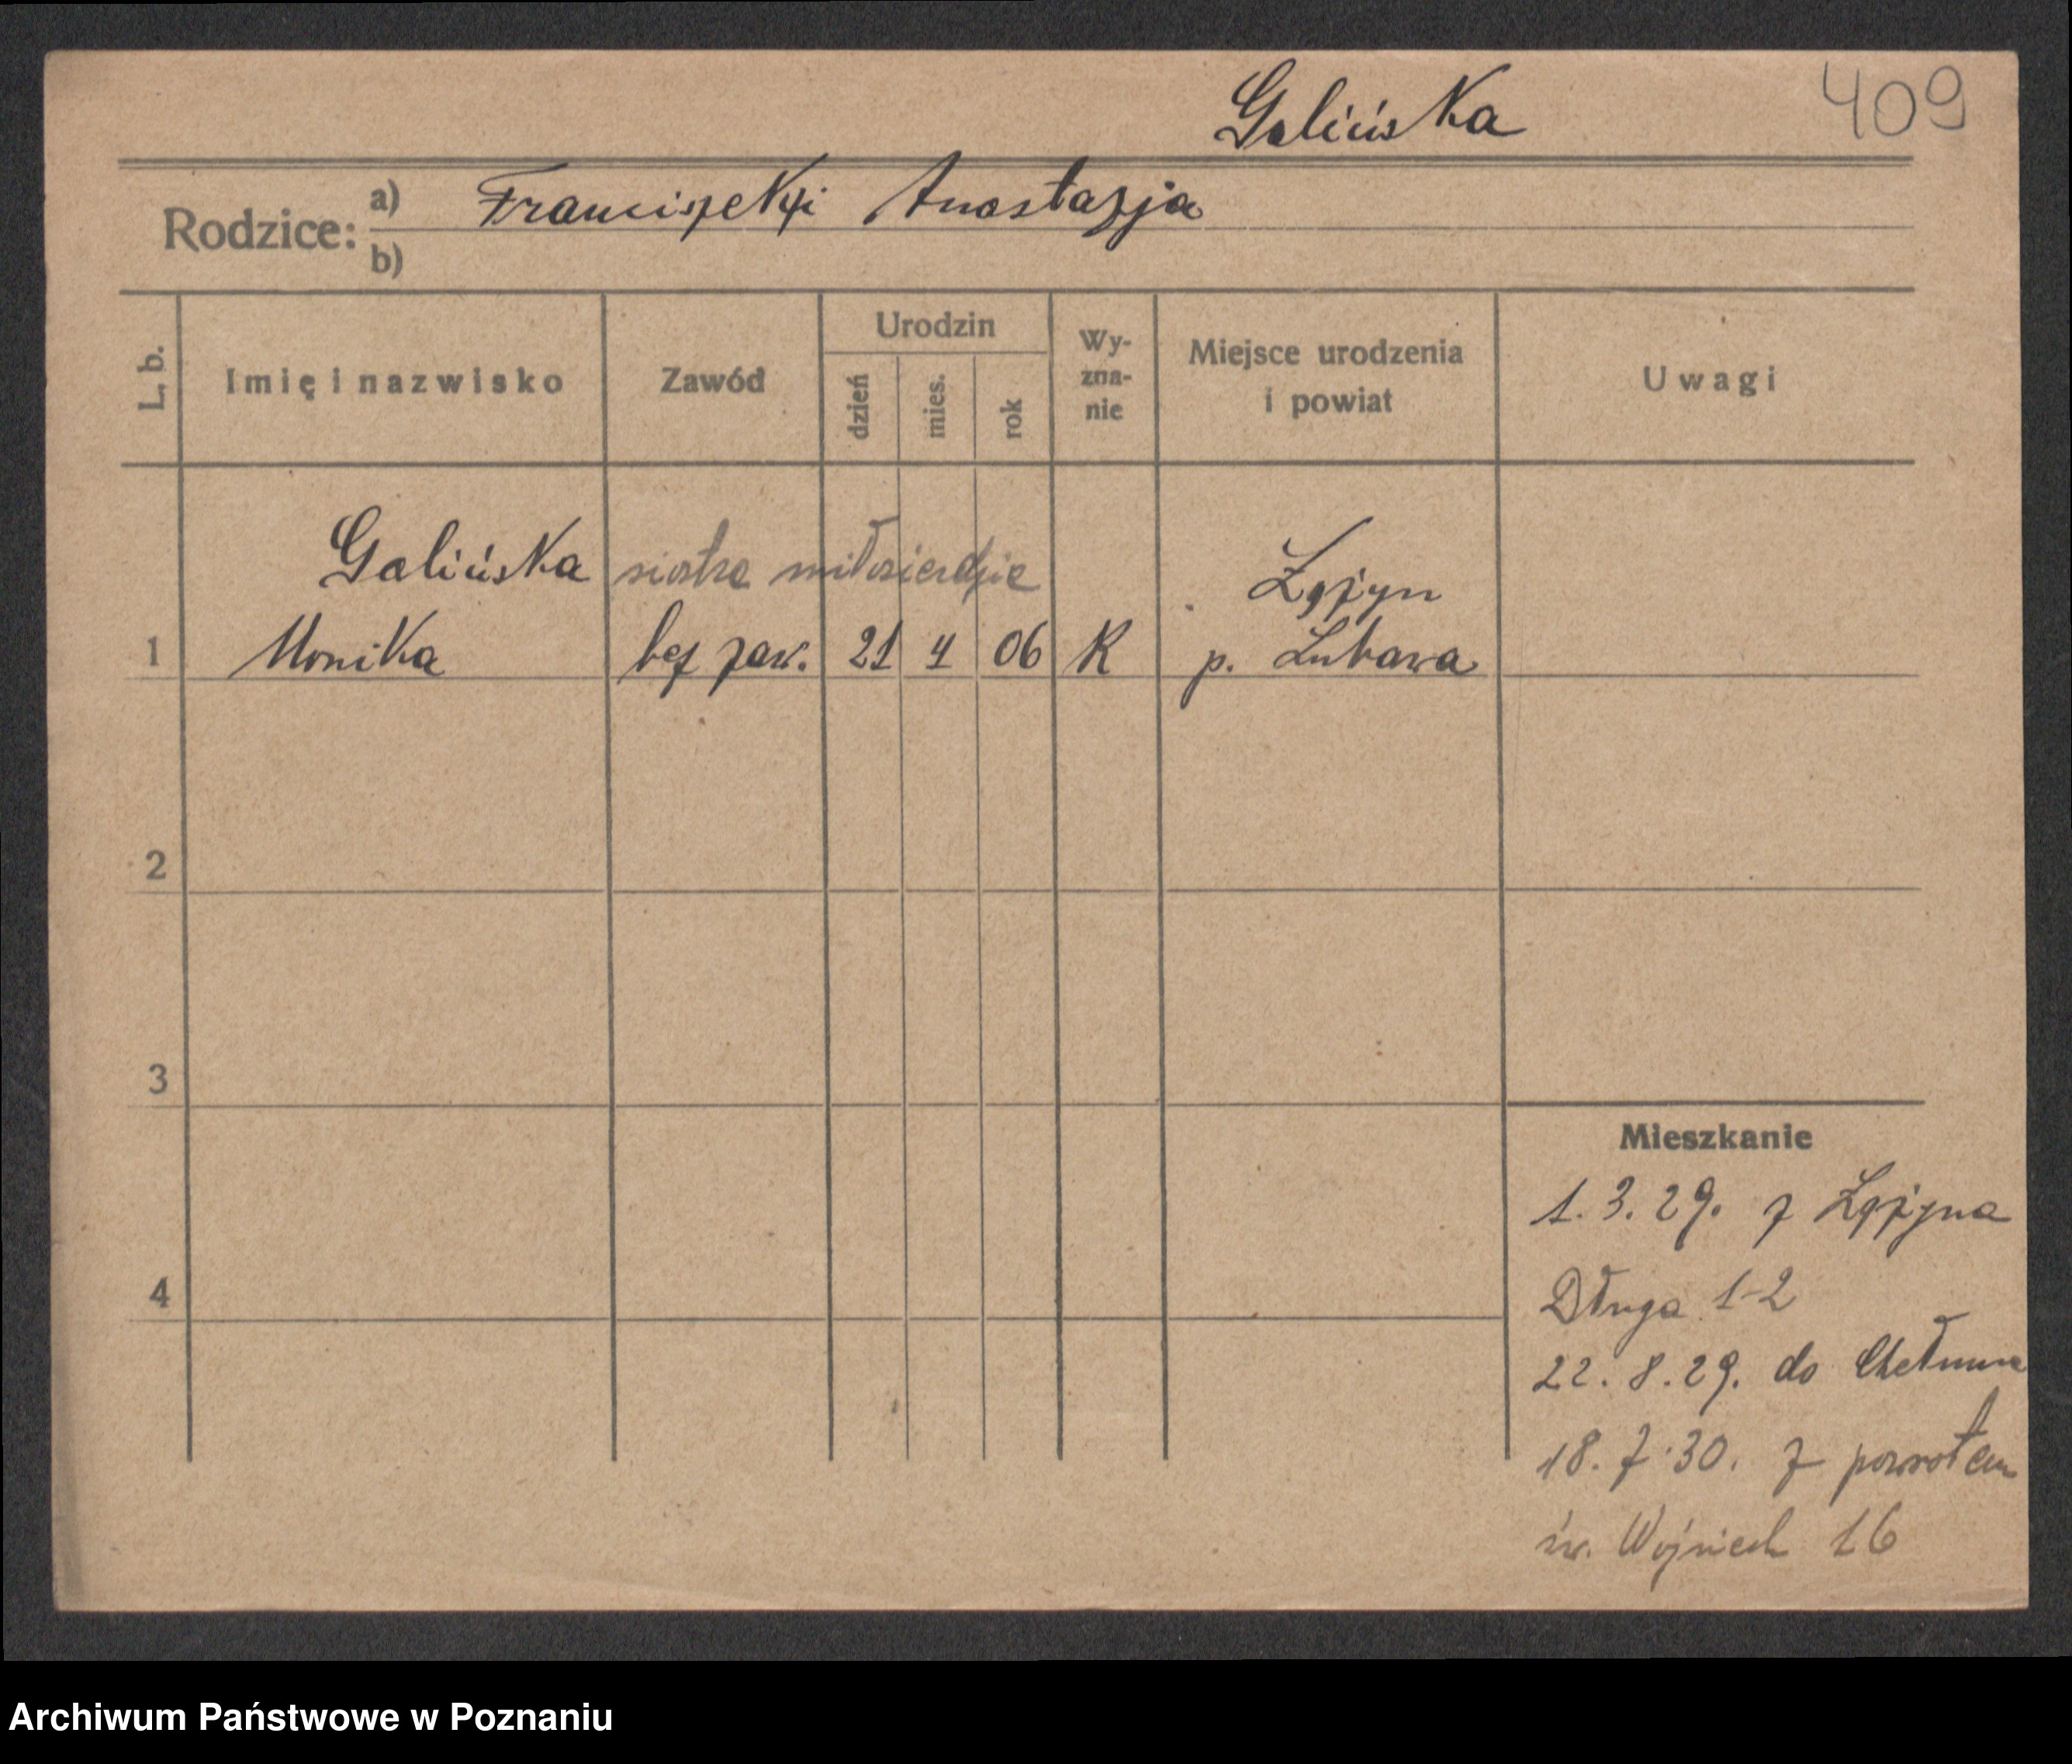 Galińska
409
Rodzice: a) Franciszek i Anastazja
b)
L. b.
Imię i nazwisko
Zawód
Urodzin
dzień
mies.
rok
Wy-
zna-
nie
Miejsce urodzenia
i powiat
Uwagi
Galińska siostra miłosierdzia
1 Monika bez zaw. 21 4 06 K p. Lubawa
2
3
4
Mieszkanie
1. 3. 29. z
Długa 1-2
22. 8. 29. do Chełmna
18. 7. 30. z powrotem
św. Wojciech 16
Archiwum Państwowe w Poznaniu